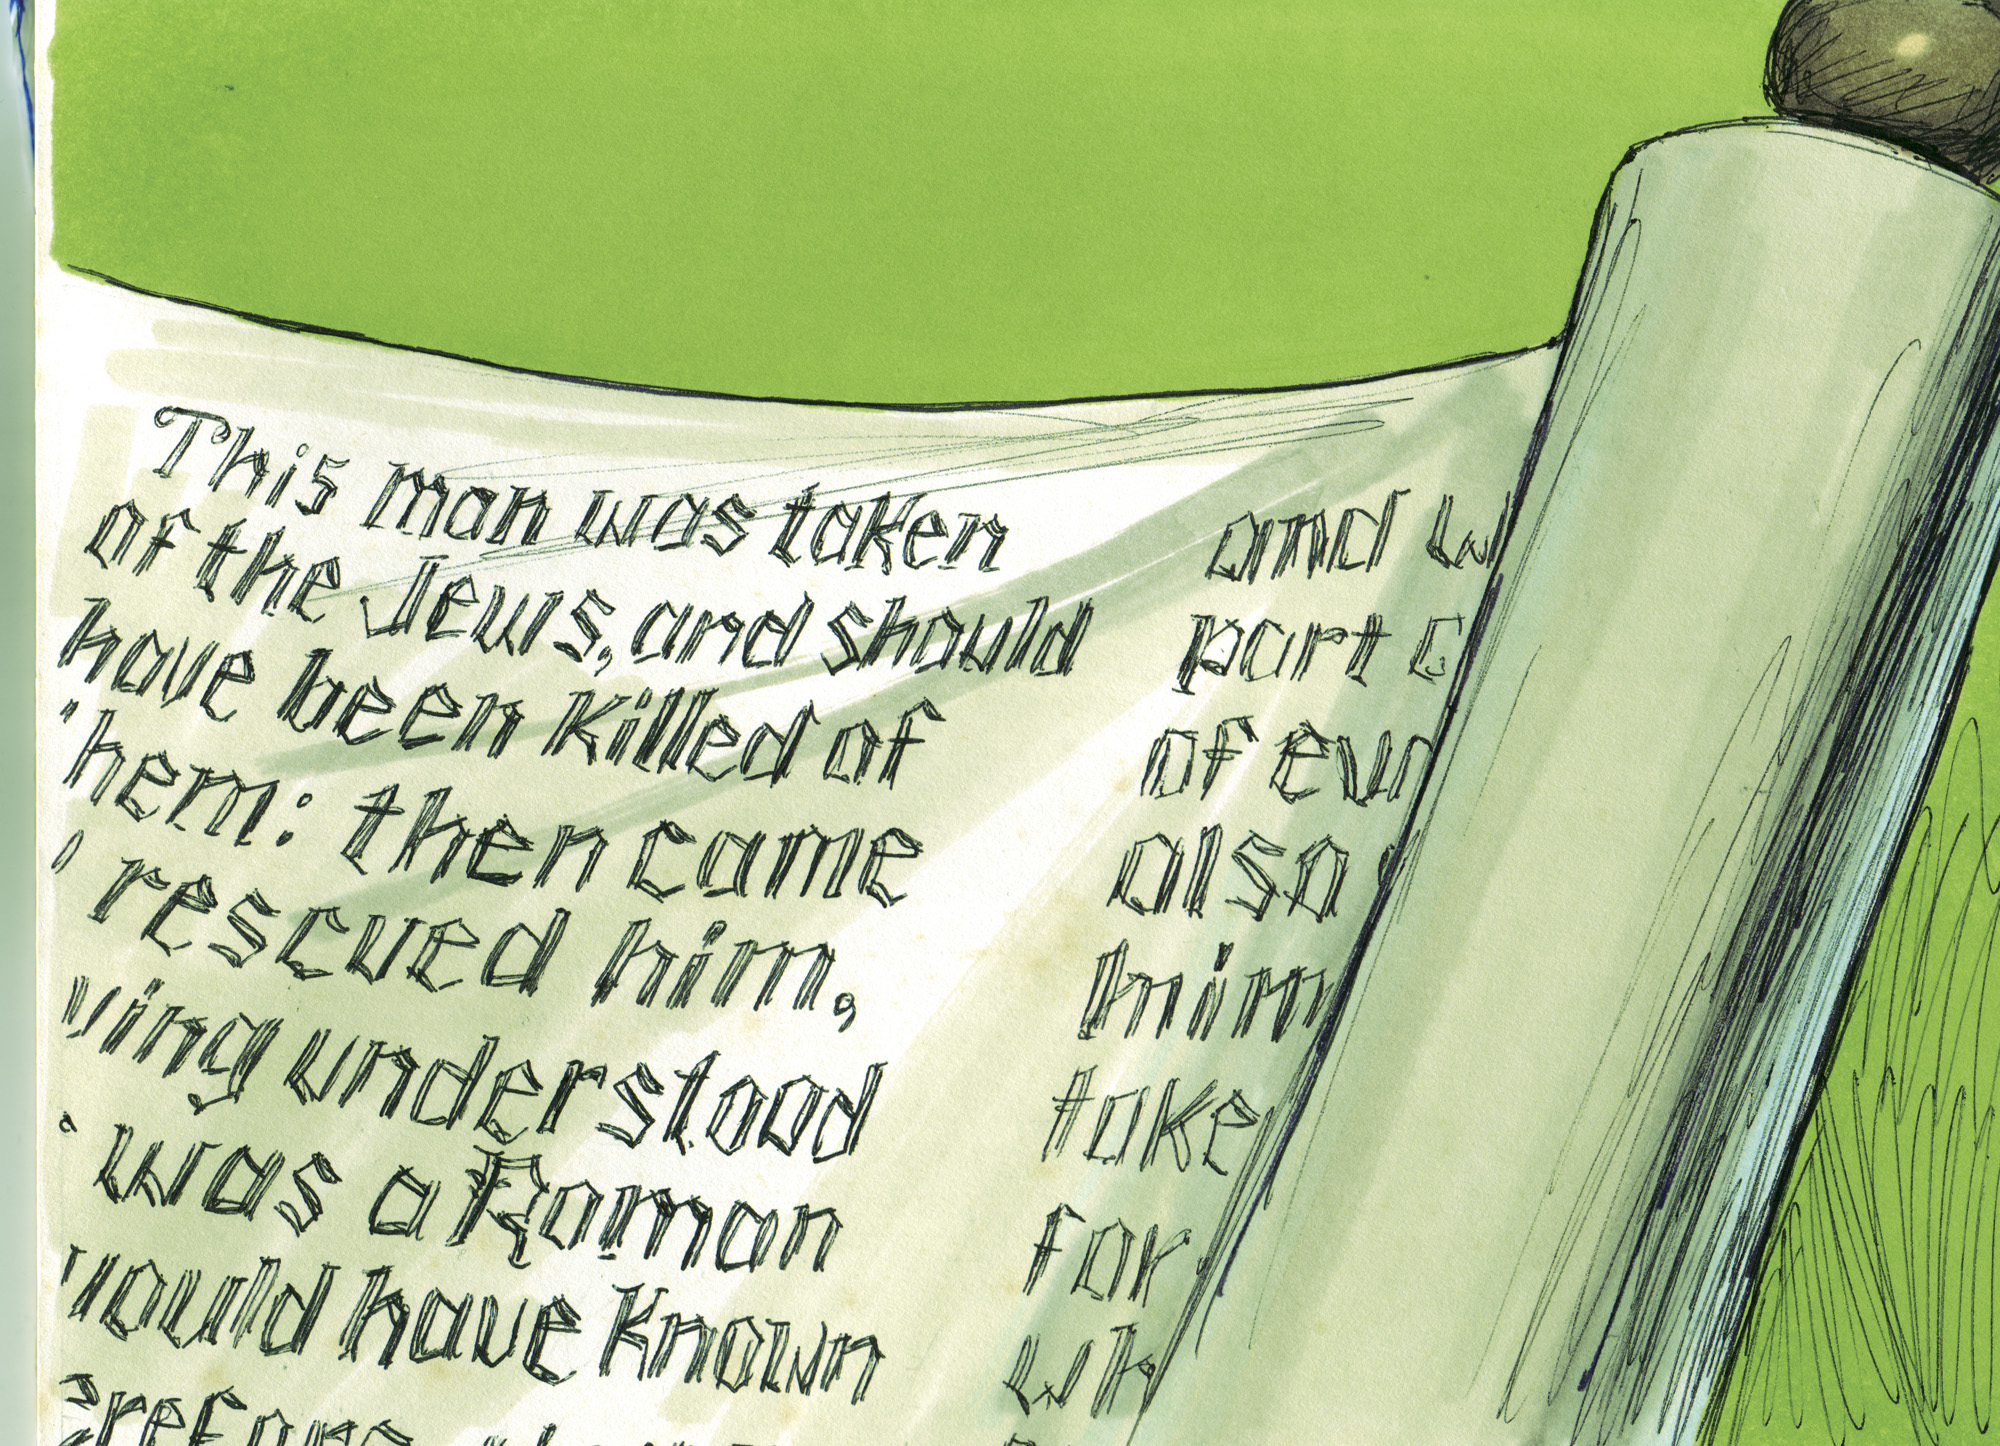 This man was taken
of the Jews, and should
have been killed of
hem: then came
rescued him,
ving understood
was a Roman
would have known
erefore
and w
part
of eve
also
him
take
for
wh